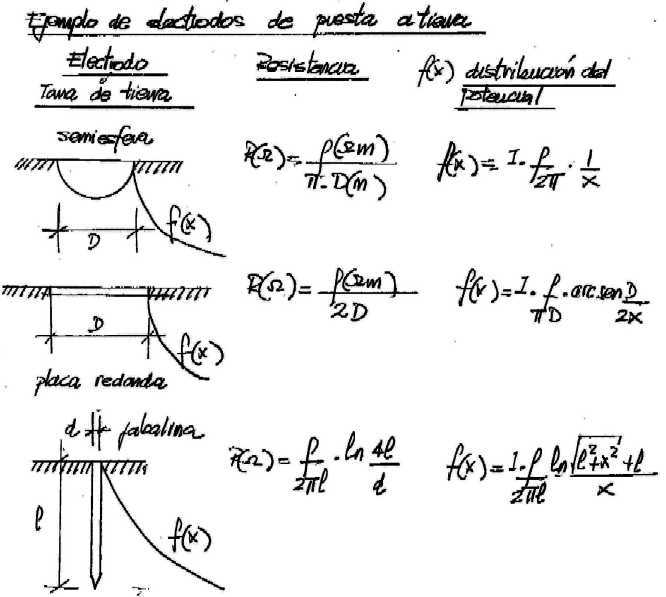 Ejemplo de electrodos de puesta a tierra
Electrodo Resistencia f(x) distribución del
Toma de tierra potencial
semiesfera
R(Ω) = ρ(Ωm) / π·D(m) f(x) = I · ρ/2π · 1/x
f(x)
D
R(Ω) = ρ(Ωm) / 2D f(x) = I · ρ/πD · arcsen D/2x
D
f(x)
placa redonda
d jabalina
R(Ω) = ρ/2πl · ln 4l/d f(x) = I·ρ/2πl ln √(l²+x²)+l / x
l
f(x)